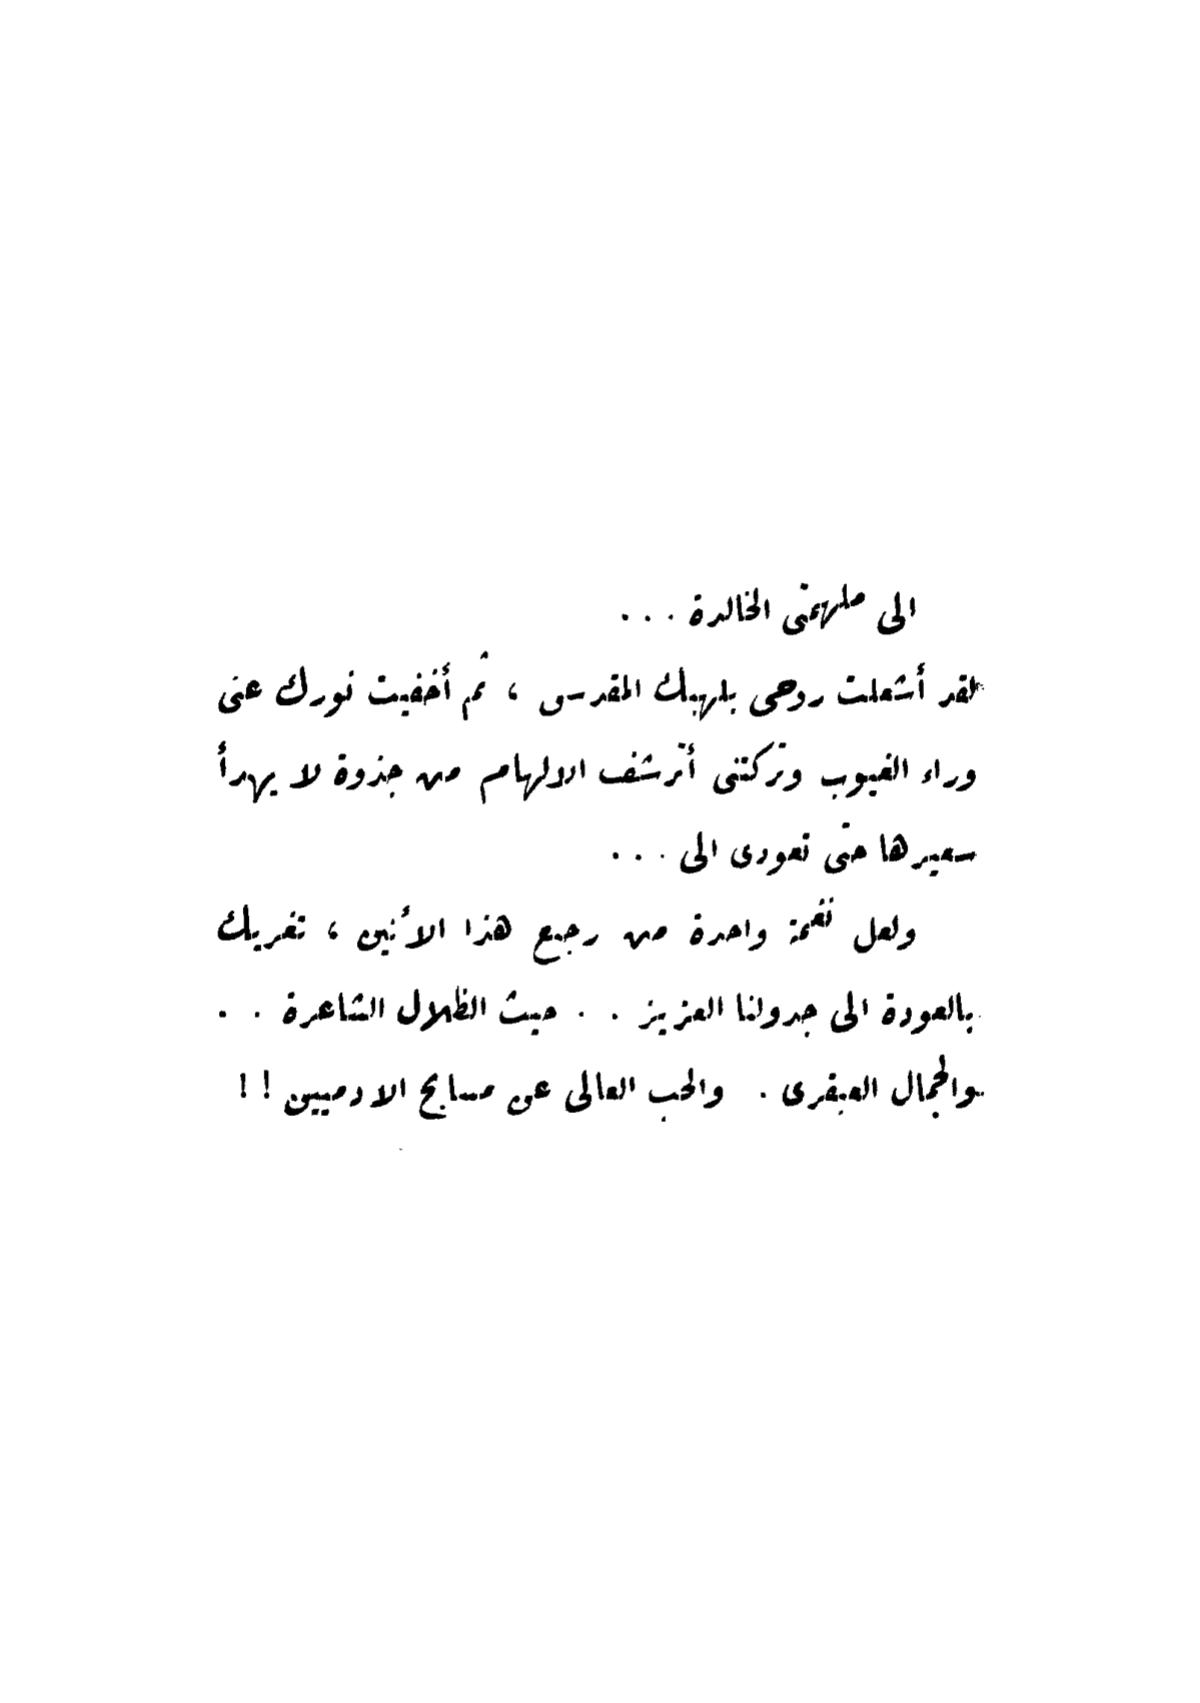 الى ملهمتى الخالدة ...
لقد أشعلت روحى بلهيبك المقدس ، ثم أخفيت نورك عنى
وراء الغيوب وتركتنى أترشف الالهام من جذوة لا يهدأ
سعيرها حتى تعودى الى ...
ولعل نغمة واحدة من رجيع هذا الأنين ، تغريك
بالعودة الى جدولنا العزيز . . حيث الظلال الشاعرة . .
والجمال العبقرى . والحب العالى عن مسابح الادميين !!